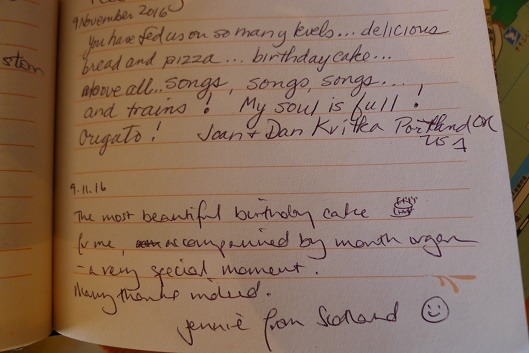 9 November 2016
You have fed us on so many levels... delicious
bread and pizza... birthday cake...
Above all... songs, songs, songs...
and trains! My soul is full!
Origato! Joan + Dan Kvitka Portland OR
USA
9.11.16
The most beautiful birthday cake
for me, accompanied by mouth organ
- a very special moment.
Many thanks indeed.
Jennie from Scotland